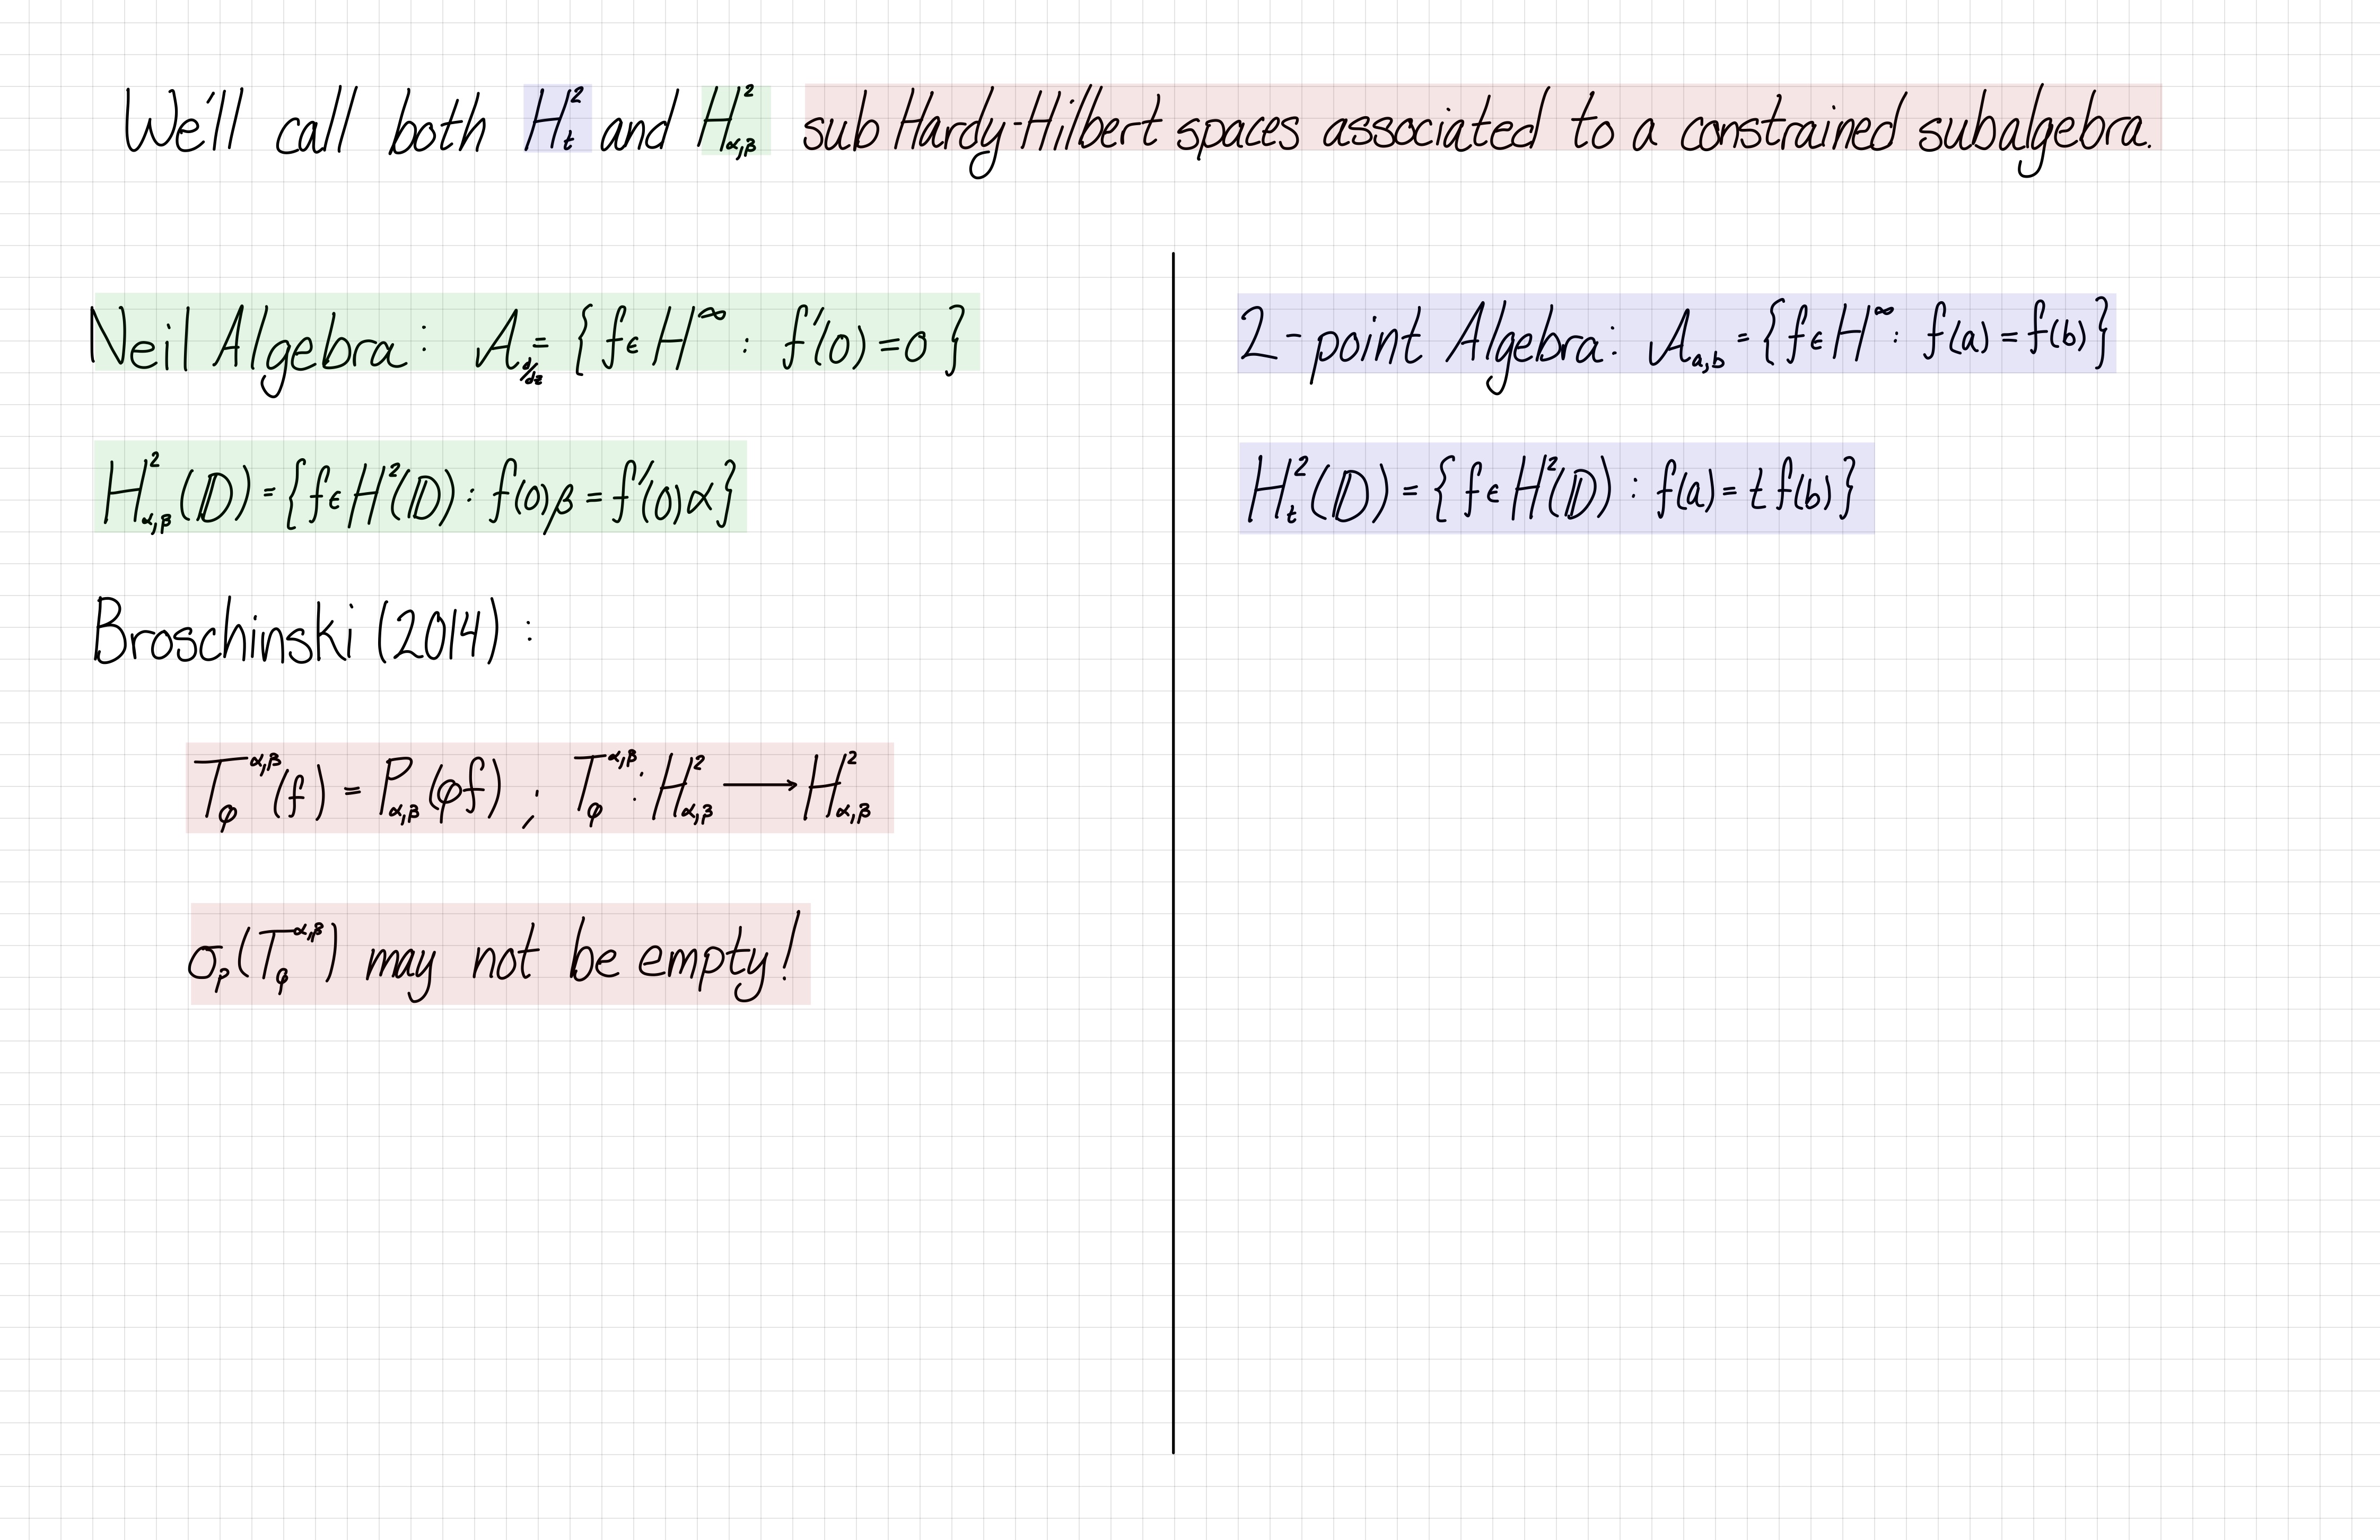 We'll call both H²ₜ and H²_{α,β} sub Hardy-Hilbert spaces associated to a constrained subalgebra.
Neil Algebra: A_{d/dz} = {f ∈ H^∞ : f'(0) = 0}
H²_{α,β}(𝔻) = {f ∈ H²(𝔻) : f(0)β = f'(0)α}
Broschinski (2014) :
T_φ^{α,β}(f) = P_{α,β}(φf) ; T_φ^{α,β} : H²_{α,β} ⟶ H²_{α,β}
σ_p(T_φ^{α,β}) may not be empty!
2-point Algebra: A_{a,b} = {f ∈ H^∞ : f(a) = f(b)}
H²ₜ(𝔻) = {f ∈ H²(𝔻) : f(a) = t f(b)}